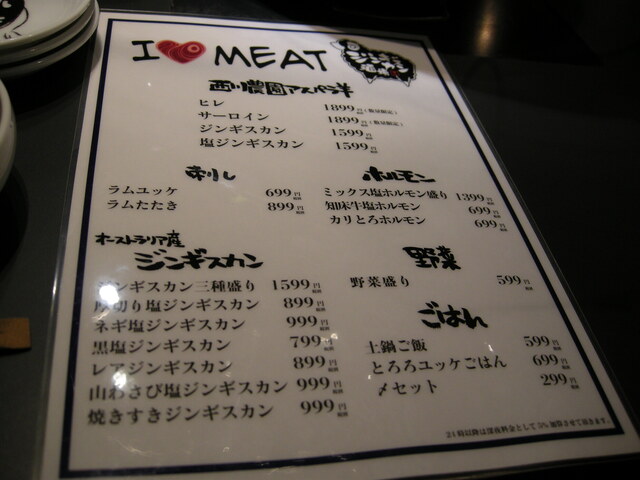 I MEAT
西川農園アスパラ羊
ヒレ 1899円(数量限定)
サーロイン 1899円(数量限定)
ジンギスカン 1599円
塩ジンギスカン 1599円
刺し
ラムユッケ 699円
ラムたたき 899円
ホルモン
ミックス塩ホルモン盛り 1399円
知床牛塩ホルモン 699円
カリとろホルモン 699円
オーストラリア産
ジンギスカン
ジンギスカン三種盛り 1599円
厚切り塩ジンギスカン 899円
ネギ塩ジンギスカン 999円
黒塩ジンギスカン 799円
レアジンギスカン 899円
山わさび塩ジンギスカン 999円
焼きすきジンギスカン 999円
野菜
野菜盛り 599円
ごはん
土鍋ご飯 599円
とろろユッケごはん 699円
〆セット 299円